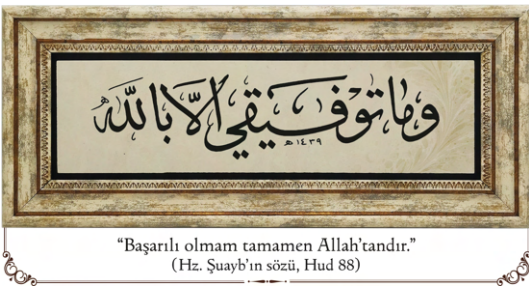 وما توفيقي الا بالله
١٤٣٩ھ
“Başarılı olmam tamamen Allah’tandır.”
(Hz. Şuayb’ın sözü, Hud 88)